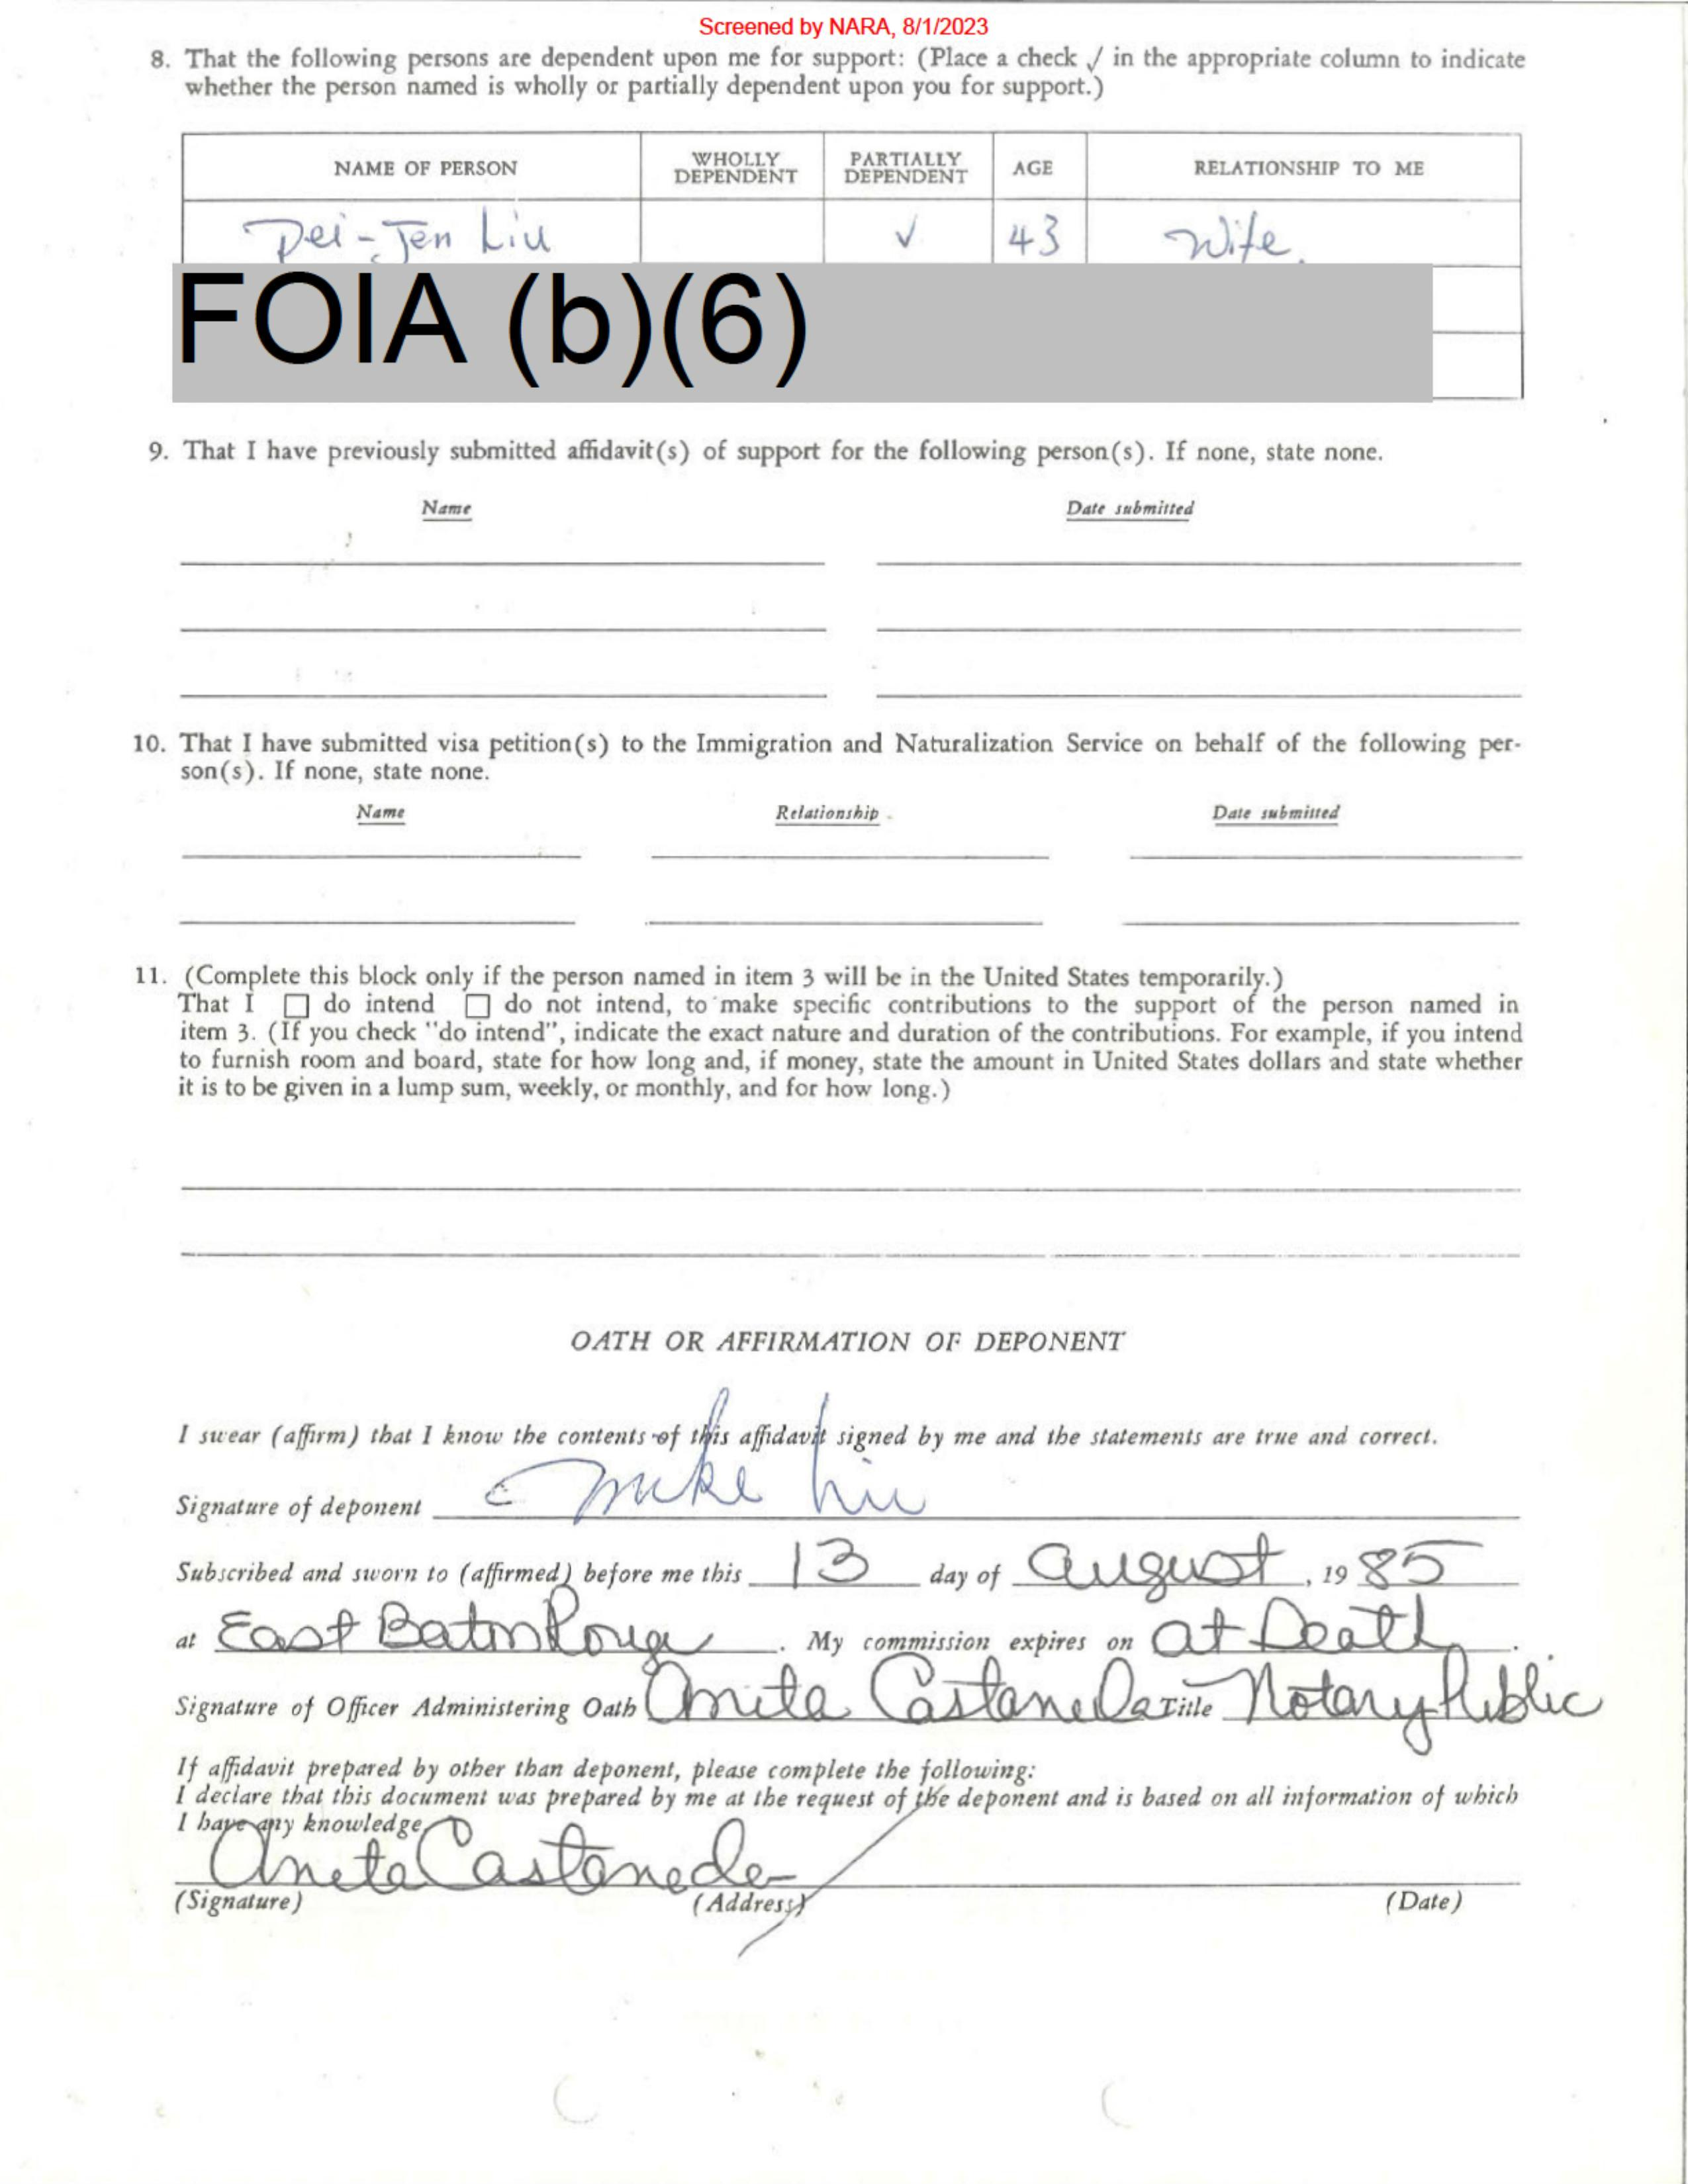 Screened by NARA, 8/1/2023
8. That the following persons are dependent upon me for support: (Place a check √ in the appropriate column to indicate
whether the person named is wholly or partially dependent upon you for support.)
NAME OF PERSON WHOLLY DEPENDENT PARTIALLY DEPENDENT AGE RELATIONSHIP TO ME
Pei-Jen Liu √ 43 Wife.
FOIA (b)(6)
9. That I have previously submitted affidavit(s) of support for the following person(s). If none, state none.
Name Date submitted
10. That I have submitted visa petition(s) to the Immigration and Naturalization Service on behalf of the following per-
son(s). If none, state none.
Name Relationship Date submitted
11. (Complete this block only if the person named in item 3 will be in the United States temporarily.)
That I □ do intend □ do not intend, to make specific contributions to the support of the person named in
item 3. (If you check "do intend", indicate the exact nature and duration of the contributions. For example, if you intend
to furnish room and board, state for how long and, if money, state the amount in United States dollars and state whether
it is to be given in a lump sum, weekly, or monthly, and for how long.)
OATH OR AFFIRMATION OF DEPONENT
I swear (affirm) that I know the contents of this affidavit signed by me and the statements are true and correct.
Signature of deponent Mike Liu
Subscribed and sworn to (affirmed) before me this 13 day of August, 19 85
at East Baton Rouge. My commission expires on at Death.
Signature of Officer Administering Oath Anita Castaneda Title Notary Public
If affidavit prepared by other than deponent, please complete the following:
I declare that this document was prepared by me at the request of the deponent and is based on all information of which
I have any knowledge.
Anita Castaneda
(Signature) (Address) (Date)